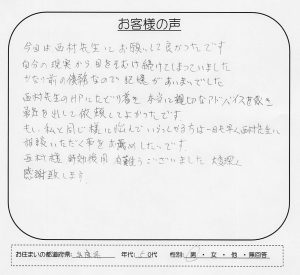 お客様の声
今回は西村先生にお願いして良かったです
自分の現実から目をそむけ続けてしまっていました
かなり前の債務なので記憶があいまいでした
西村先生のHPにたどり着き 本当に親切なアドバイスを頂き
勇気を出して依頼してよかったです
もし、私と同じ様に悩んでいらっしゃる方は一日も早く西村先生に
相談いただく事をお薦めしたいです
西村様 時効援用 有難うございました 大変
感謝致します
お住まいの都道府県: 兵庫県 年代: 50代 性別: 男・女・他・無回答